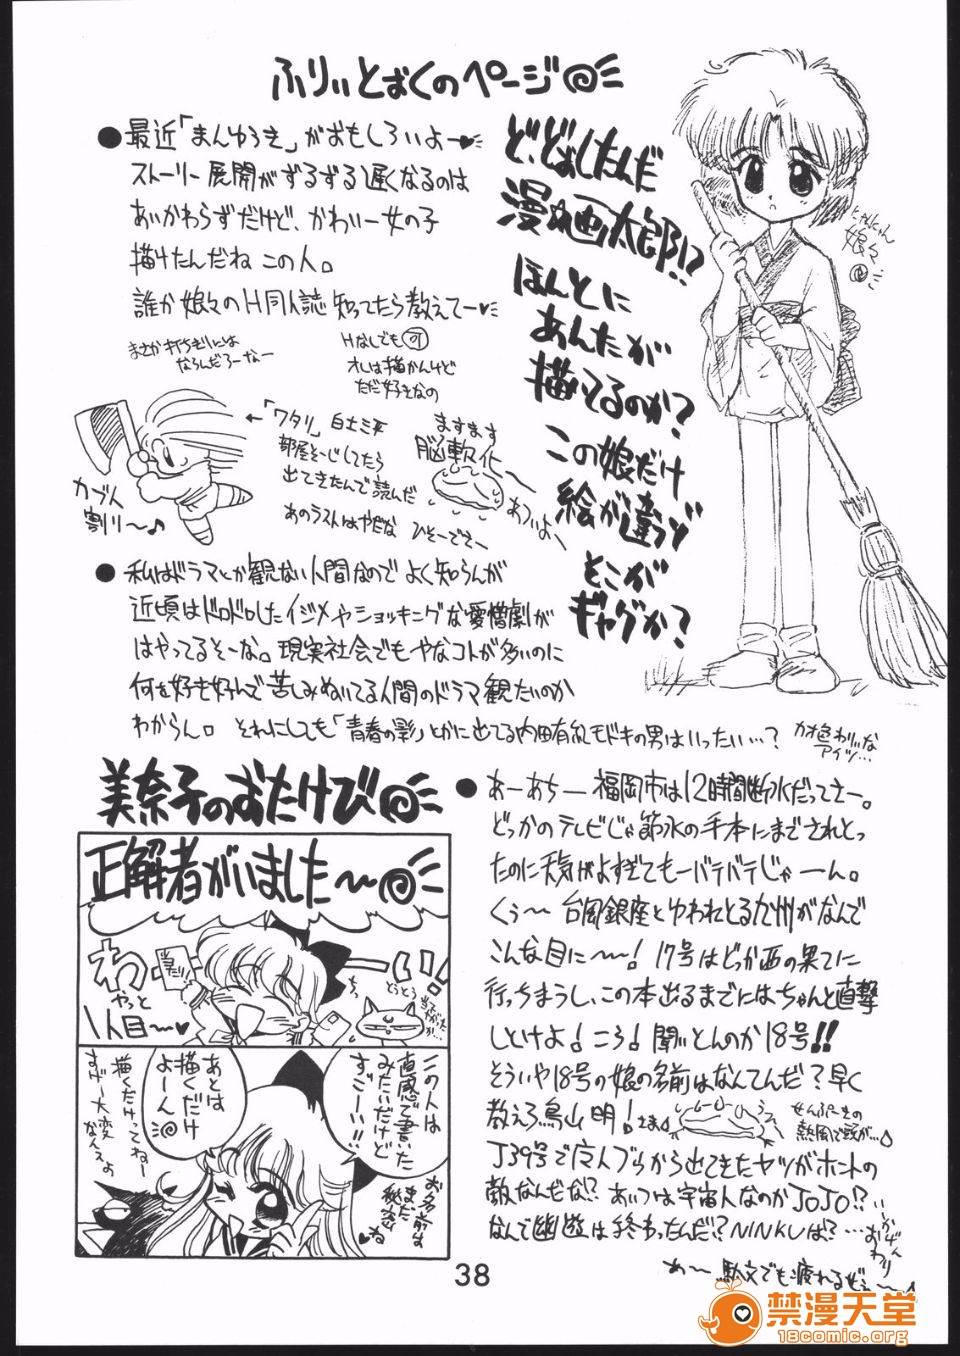 ふりぃとおくのページ
●最近「まんゆうき」がおもしろいよー♥
ストーリー展開がずるずる遅くなるのは
あいかわらずだけど、かわいー女の子
描けたんだね この人。
誰か娘々のH同人誌知ってたら教えてー♥
まさか打ち切りには
ならんだろーなー
Hなしでも可
オレは描かんけど
ただ好きなの
ど、どおしたんだ
漫☆画太郎!?
ほんとに
あんたが
描いてるのか?
この娘だけ
絵が違うぞ
そこが
ギャグか?
娘々
←「ワタリ」白土三平
部屋そーじしてたら
出てきたんで読んだ
あのラストはやだな ひそーでさー
カブト
割り〜♪
ますます
脳軟化
あついよ
●私はドラマとか観ない人間なのでよく知らんが
近頃はドロドロしたイジメやショッキングな愛憎劇が
はやってるそーな。現実社会でもやなコトが多いのに
何を好き好んで苦しみぬいてる人間のドラマ観たいのか
わからん。それにしても「青春の影」とかに出てる内田有紀モドキの男はいったい…?
カオ色わりぃな
アイツ…
美奈子のおたけび
正解者がいました〜
わーーい!
当たり!
やっと
1人目〜♥
とうとう
この人は
直感で書いた
みたいだけど
すごーい!!
あとは
描くだけ
よーん
描くだけってねー
すげー大変
なんよぉ
お名前は
まだ
秘密
ね
●あーあちー 福岡市は12時間断水だってさー。
どっかのテレビじゃ節水の手本にまでされとっ
たのに天気がよすぎてもーバテバテじゃーん。
くぅ〜 台風銀座とゆわれとる九州がなんで
こんな目に〜〜! 17号はどっか西の果てに
行っちまうし、この本出るまでにはちゃんと直撃
しとけよ!ころ!聞いとんのか18号!!
そういや18号の娘の名前はなんてんだ?早く
教えろ鳥山明!さま
せんぷーきの
熱風で我が…
J39号で广人ブらから出てきたヤツがホントの
敵なんだな!?あいつは宇宙人なのかJOJO!?
なんで幽遊は終わったんだ!?NINKUは?…
かぜん
おわり
あ〜 駄文でも疲れるぜぇ〜
38
禁漫天堂
18comic.org